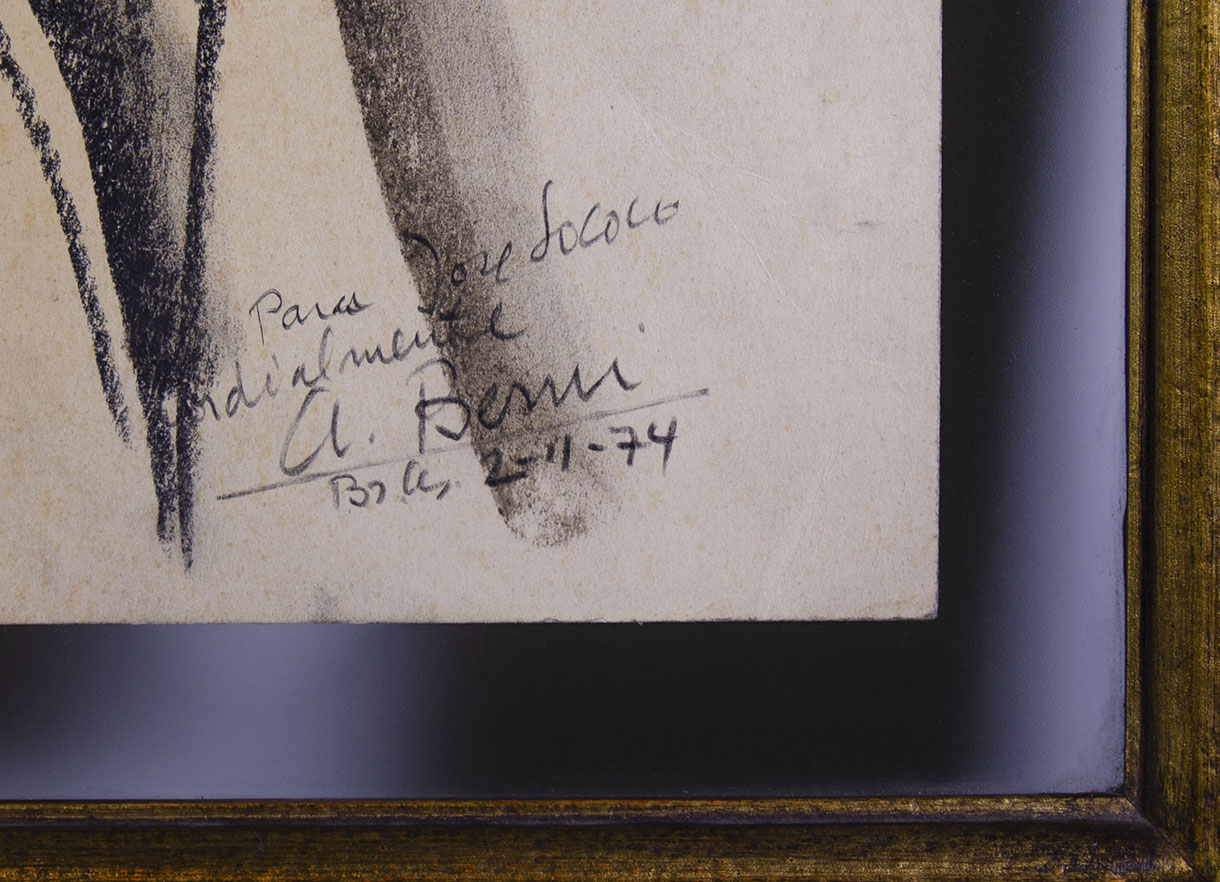 Para Jose Lococo
Cordialmente
A. Berni
Bs As, 2-11-74